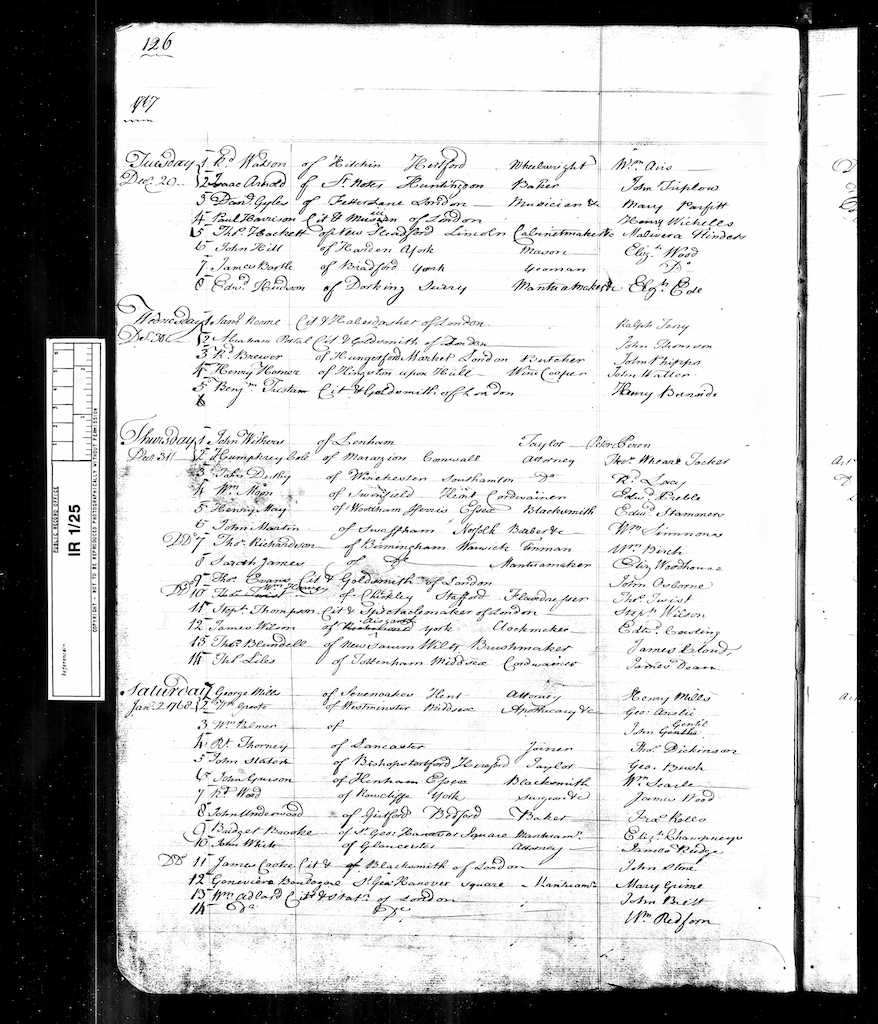 126
1767
Tuesday 1 Rd Watson of Hitchin Hertford Wheelwright Wm Airs
Dec. 29 2 Isaac Arnold of St Neots Huntingdon Baker John Triplow
3 Dand Gyles of Fetter Lane London Musician &c Mary Parfitt
4 Paul Harrison Cit & Musician of London Henry Wickells
5 Thos Hackett of New Sleaford Lincoln Cabinetmaker &c Malivera Flinders
6 John Hill of Harden York Mason Elizth Wood
7 James Bartle of Bradford York Yeoman Do
8 Edwd Hudson of Dorking Surry Mantuamaker &c Elizth Ede
Wednesday 1 Saml Rome Cit & Haberdasher of London Ralph Terry
Dec. 30 2 Abraham Portal Cit & Goldsmith of London John Thomson
3 Rd Brewer of Hungerford Market London Butcher John Phipps
4 Henry Homer of Kingston upon Hull Wine Cooper John Waller
5 Benjmn Tristam Cit & Goldsmith of London Henry
6
Thursday 1 John Withers of Lenham Taylor Peter Peren
Dec. 31 2 Humphrey Cole of Marazion Cornwall Attorney Thos Wheare Tocker
3 John Duthy of Winchester Southamton Do Rd Lacy
4 Wm Moon of Swinfield Kent Cordwainer Edwd Prebble
5 Henry May of Woodham Ferris Essex Blacksmith Edwd Stammer
6 John Martin of Swaffham Norfolk Barber &c Wm Simmons
DD 7 Thos Richardson of Birmingham Warwick Tinman Wm Birch
8 Sarah James of Do Mantuamaker Eliz Woodhouse
9 Thos Evans Cit & Goldsmith of London John Osborne
10 of Checkley Stafford Flaxdresser Thos Twist
11 Stepn Thompson Cit & Spectaclemaker of London Stepn Wilson
12 James Wilson of York Clockmaker Edwd Cowling
13 Thos Blundell of New Sarum Wilts Brushmaker James Cloud
14 Thos Liles of Tottenham Middsex Cordwainer James Dean
Saturday 1 George Mills of Sevenoakes Kent Attorney Henry Mills
Jan. 2. 1768 2 of Westminster Middsex Apothecary &c Geo Anstie
3 Wm Palmer of John
4 Rt Thorney of Lancaster Joiner Thos Dickinson
5 John Slater of Bishopstortford Hereford Taylor Geo. Bush
6 John Gunson of Henham Essex Blacksmith Wm Searle
7 Rt Wood of Rawcliffe York Surgeon &c James Wood
8 John Underwood of Girtford Bedford Baker Fras Kells
9 Bridget Brooke of St Geo Hanover Square Mantuamr Elizth Champneys
10 John White of Gloucester Attorney James Rudge
DD 11 James Cooke Cit & Blacksmith of London John Stone
12 Genevieve Boulogne St Geo Hanover Square Mantuamr Mary Grime
13 Wm Adlard Cit & Statr of London John Brett
14 Do Do Wm Redforn
PUBLIC RECORD OFFICE
IR 1/25
COPYRIGHT - NOT TO BE REPRODUCED PHOTOGRAPHICALLY WITHOUT PERMISSION
Reference:-